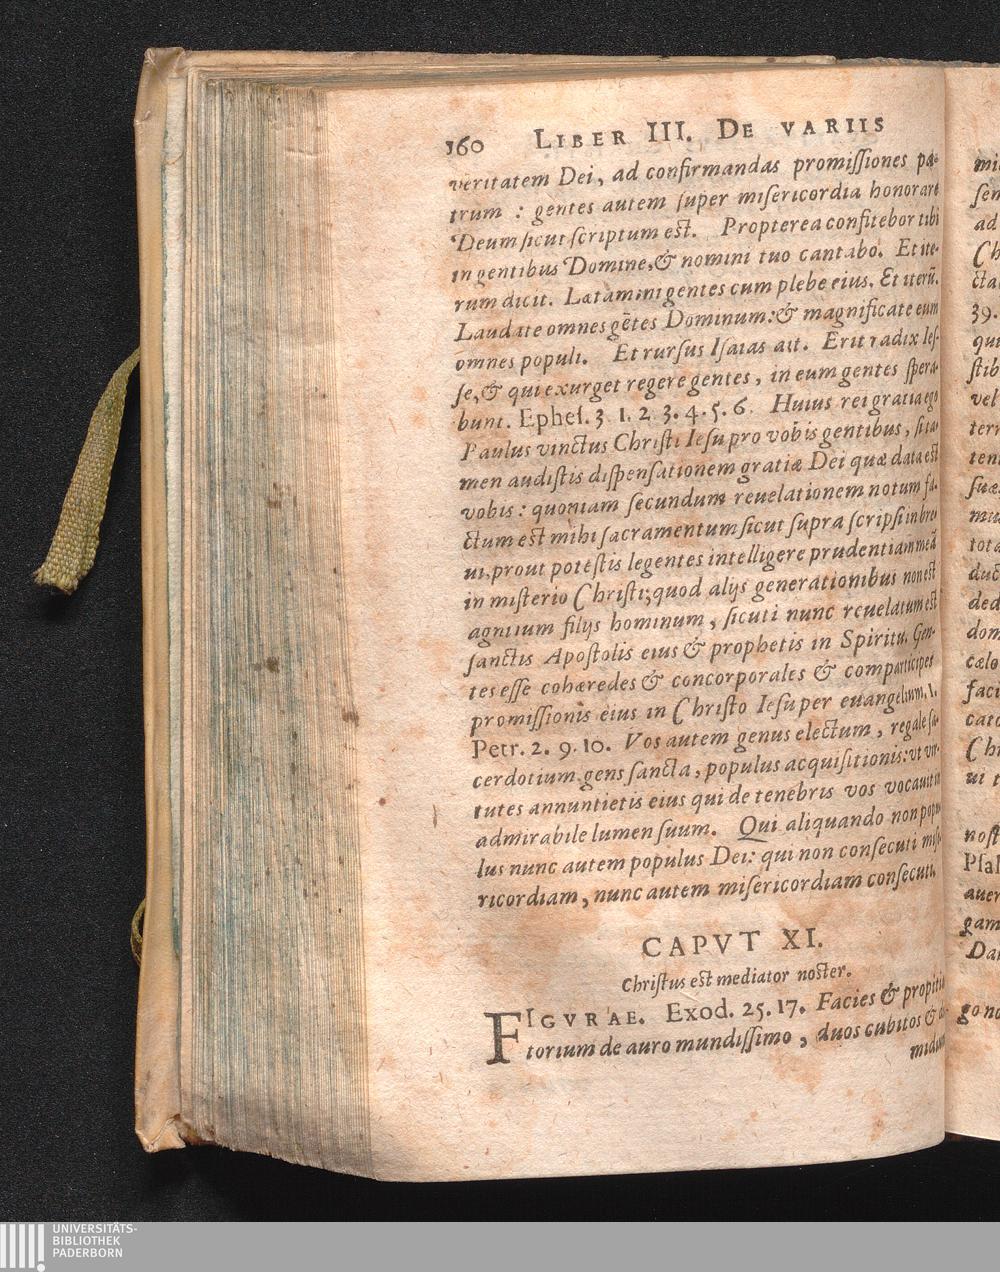 160 LIBER III. DE VARIIS
veritatem Dei, ad confirmandas promiſſiones pa-
trum : gentes autem ſuper miſericordia honorare
Deum ſicut ſcriptum est. Propterea confitebor tibi
in gentibus Domine, & nomini tuo cantabo. Et ite-
rum dicit. Lætamini gentes cum plebe eius. Et iterũ.
Laudate omnes gẽtes Dominum: & magnificate eum
omnes populi. Et rurſus Iſaias ait. Erit radix Ieſ-
ſe, & qui exurget regere gentes, in eum gentes ſpera-
bunt. Epheſ. 3 1. 2 3. 4. 5. 6. Huius rei gratia ego
Paulus vinctus Chriſti Ieſu pro vobis gentibus, ſi ta-
men audiſtis diſpenſationem gratiæ Dei quæ data est
vobis : quoniam ſecundum reuelationem notum fa-
ctum est mihi ſacramentum ſicut ſupra ſcripſi in bre-
ui, prout poteſtis legentes intelligere prudentiam meã
in miſterio Chriſti; quod alijs generationibus non est
agnitum filijs hominum, ſicuti nunc reuelatum est
ſanctis Apoſtolis eius & prophetis in Spiritu. Gen-
tes eſſe cohæredes & concorporales & comparticipes
promiſſionis eius in Chriſto Ieſu per euangelium. 1.
Petr. 2. 9. 10. Vos autem genus electum, regale ſa-
cerdotium, gens ſancta, populus acquiſitionis: vt vir-
tutes annuntietis eius qui de tenebris vos vocauit in
admirabile lumen ſuum. Qui aliquando non popu-
lus nunc autem populus Dei: qui non conſecuti miſe-
ricordiam, nunc autem miſericordiam conſecuti.
CAPVT XI.
Chriſtus est mediator noster.
FIGVRAE. Exod. 25. 17. Facies & propitia
torium de auro mundiſſimo, duos cubitos & di-
midium
ſen
ad
Ch
ctal
39.
qui
ſtib
vel
tern
ten
ſuæ
mu
tota
duc
ded
dom
cælo
faci
cato
Chr
ui t
noſt
Pſal
auer
gam
Dan
go no
UNIVERSITÄTS-
BIBLIOTHEK
PADERBORN